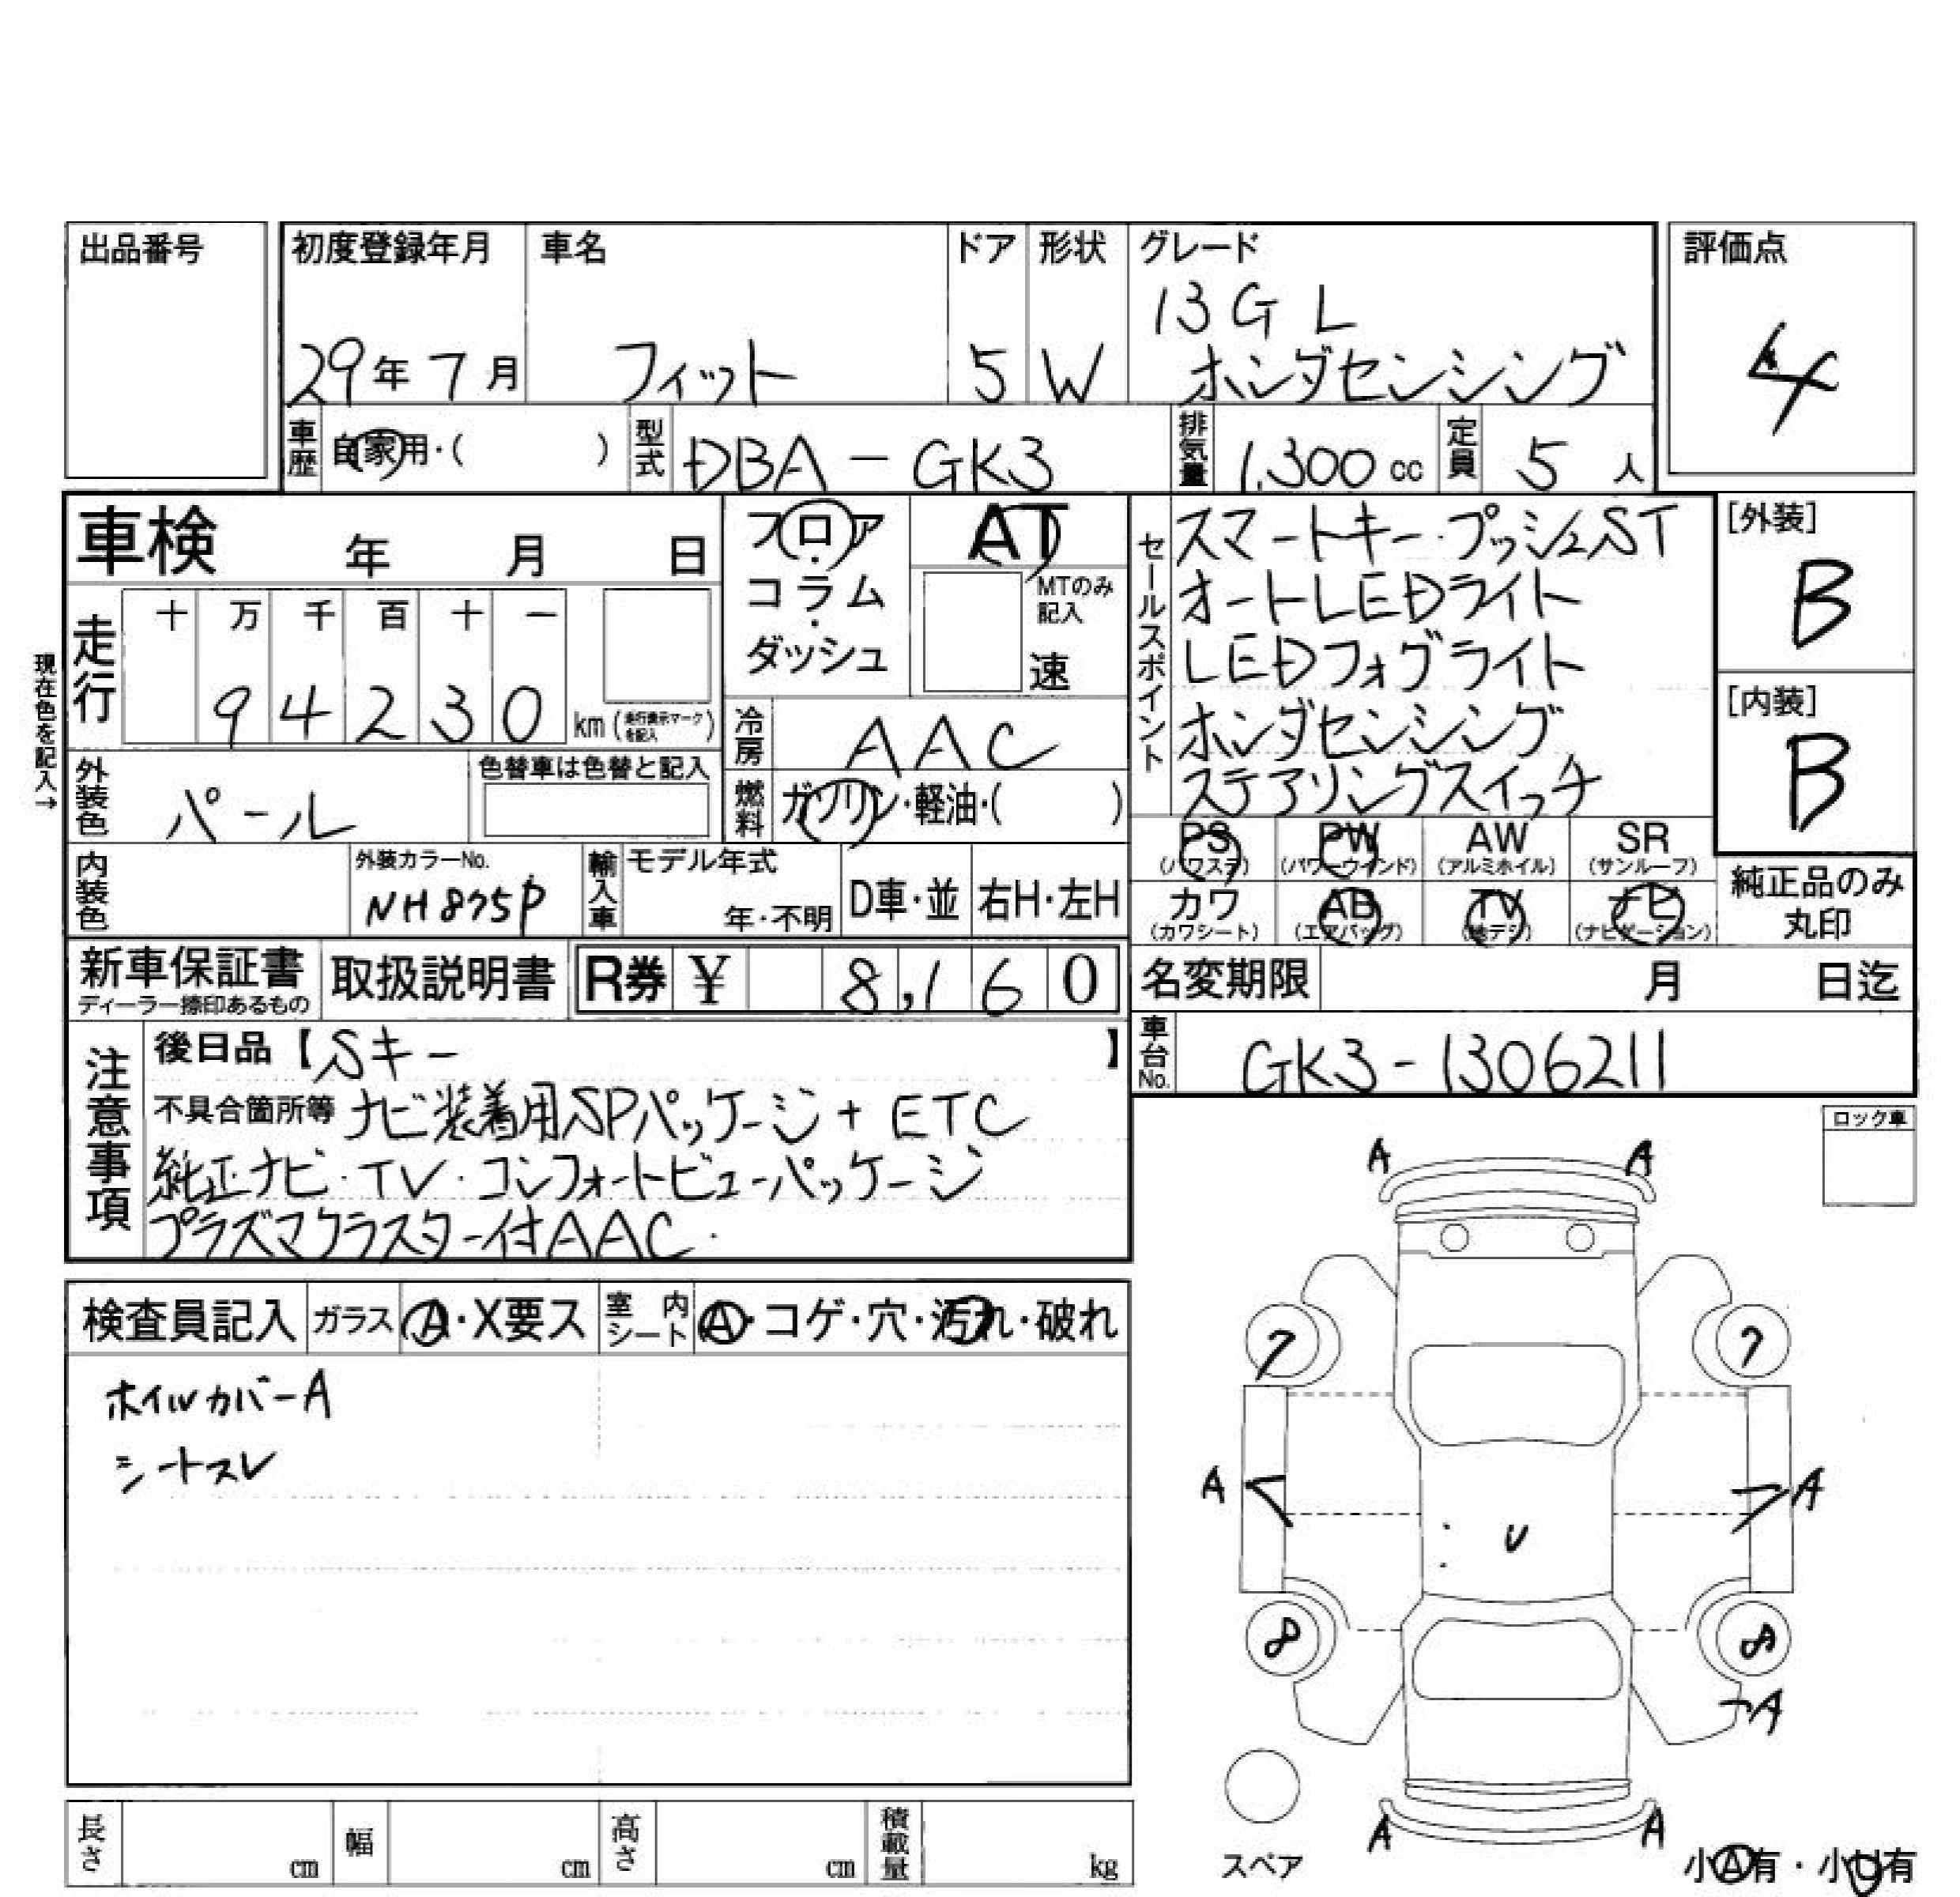 出品番号
初度登録年月 車名 ドア 形状 グレード
評価点
13GL
29年 7月 フィット 5 W ホンダセンシング
4
車歴 自家用・( ) 型式 DBA-GK3 排気量 1,300 cc 定員 5 人
車検 年 月 日
フロア・コラム・ダッシュ
AT
MTのみ記入
速
セールスポイント
スマートキー・プッシュST
オートLEDライト
LEDフォグライト
ホンダセンシング
ステアリングスイッチ
[外装]
B
[内装]
B
現在色を記入→
走行 十 万 千 百 十 一
9 4 2 3 0 km (走行表示マークを記入)
冷房 AAC
外装色 パール 色替車は色替と記入
燃料 ガソリン・軽油・( )
PS (パワステ) PW (パワーウインド) AW (アルミホイル) SR (サンルーフ)
カワ (カワシート) AB (エアバッグ) TV (地デジ) ナビ (ナビゲーション)
純正品のみ丸印
内装色 外装カラーNo. NH875P 輸入車 モデル年式 年・不明 D車・並 右H・左H
新車保証書 ディーラー捺印あるもの 取扱説明書 R券 ¥ 8,160
名変期限 月 日迄
車台No. GK3-1306211
注意事項
後日品【Sキー 】
不具合箇所等 ナビ装着用SPパッケージ+ETC
純正ナビ・TV・コンフォートビューパッケージ
プラズマクラスター付AAC.
ロック車
検査員記入 ガラス A・X要ス 室内シート A・コゲ・穴・汚れ・破れ
ホイルカバーA
シートスレ
A A
7 7
A A
U
8 8
A
A A
スペア
小A有・小U有
長さ cm 幅 cm 高さ cm 積載量 kg